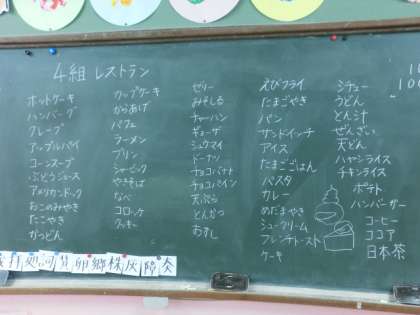 4組 レストラン
ホットケーキ
ハンバーグ
クレープ
アップルパイ
コーンスープ
ぶどうジュース
アメリカンドック
おこのみやき
たこやき
かつどん
カップケーキ
からあげ
パフェ
ラーメン
プリン
シャーピック
やきそば
なべ
コロッケ
クッキー
ゼリー
みそしる
チャーハン
ギョーザ
シュウマイ
ドーナツ
チョコバナナ
チョコパイン
天ぷら
とんかつ
おすし
えびフライ
たまごやき
パン
サンドイッチ
アイス
たまごごはん
パスタ
カレー
めだまやき
シュークリーム
フレンチトースト
ケーキ
シチュー
うどん
とん汁
ぜんざい
天どん
ハヤシライス
チキンライス
ポテト
ハンバーガー
コーヒー
ココア
日本茶
育 処 詞 賃 卵 郷 株 灰 障 奏